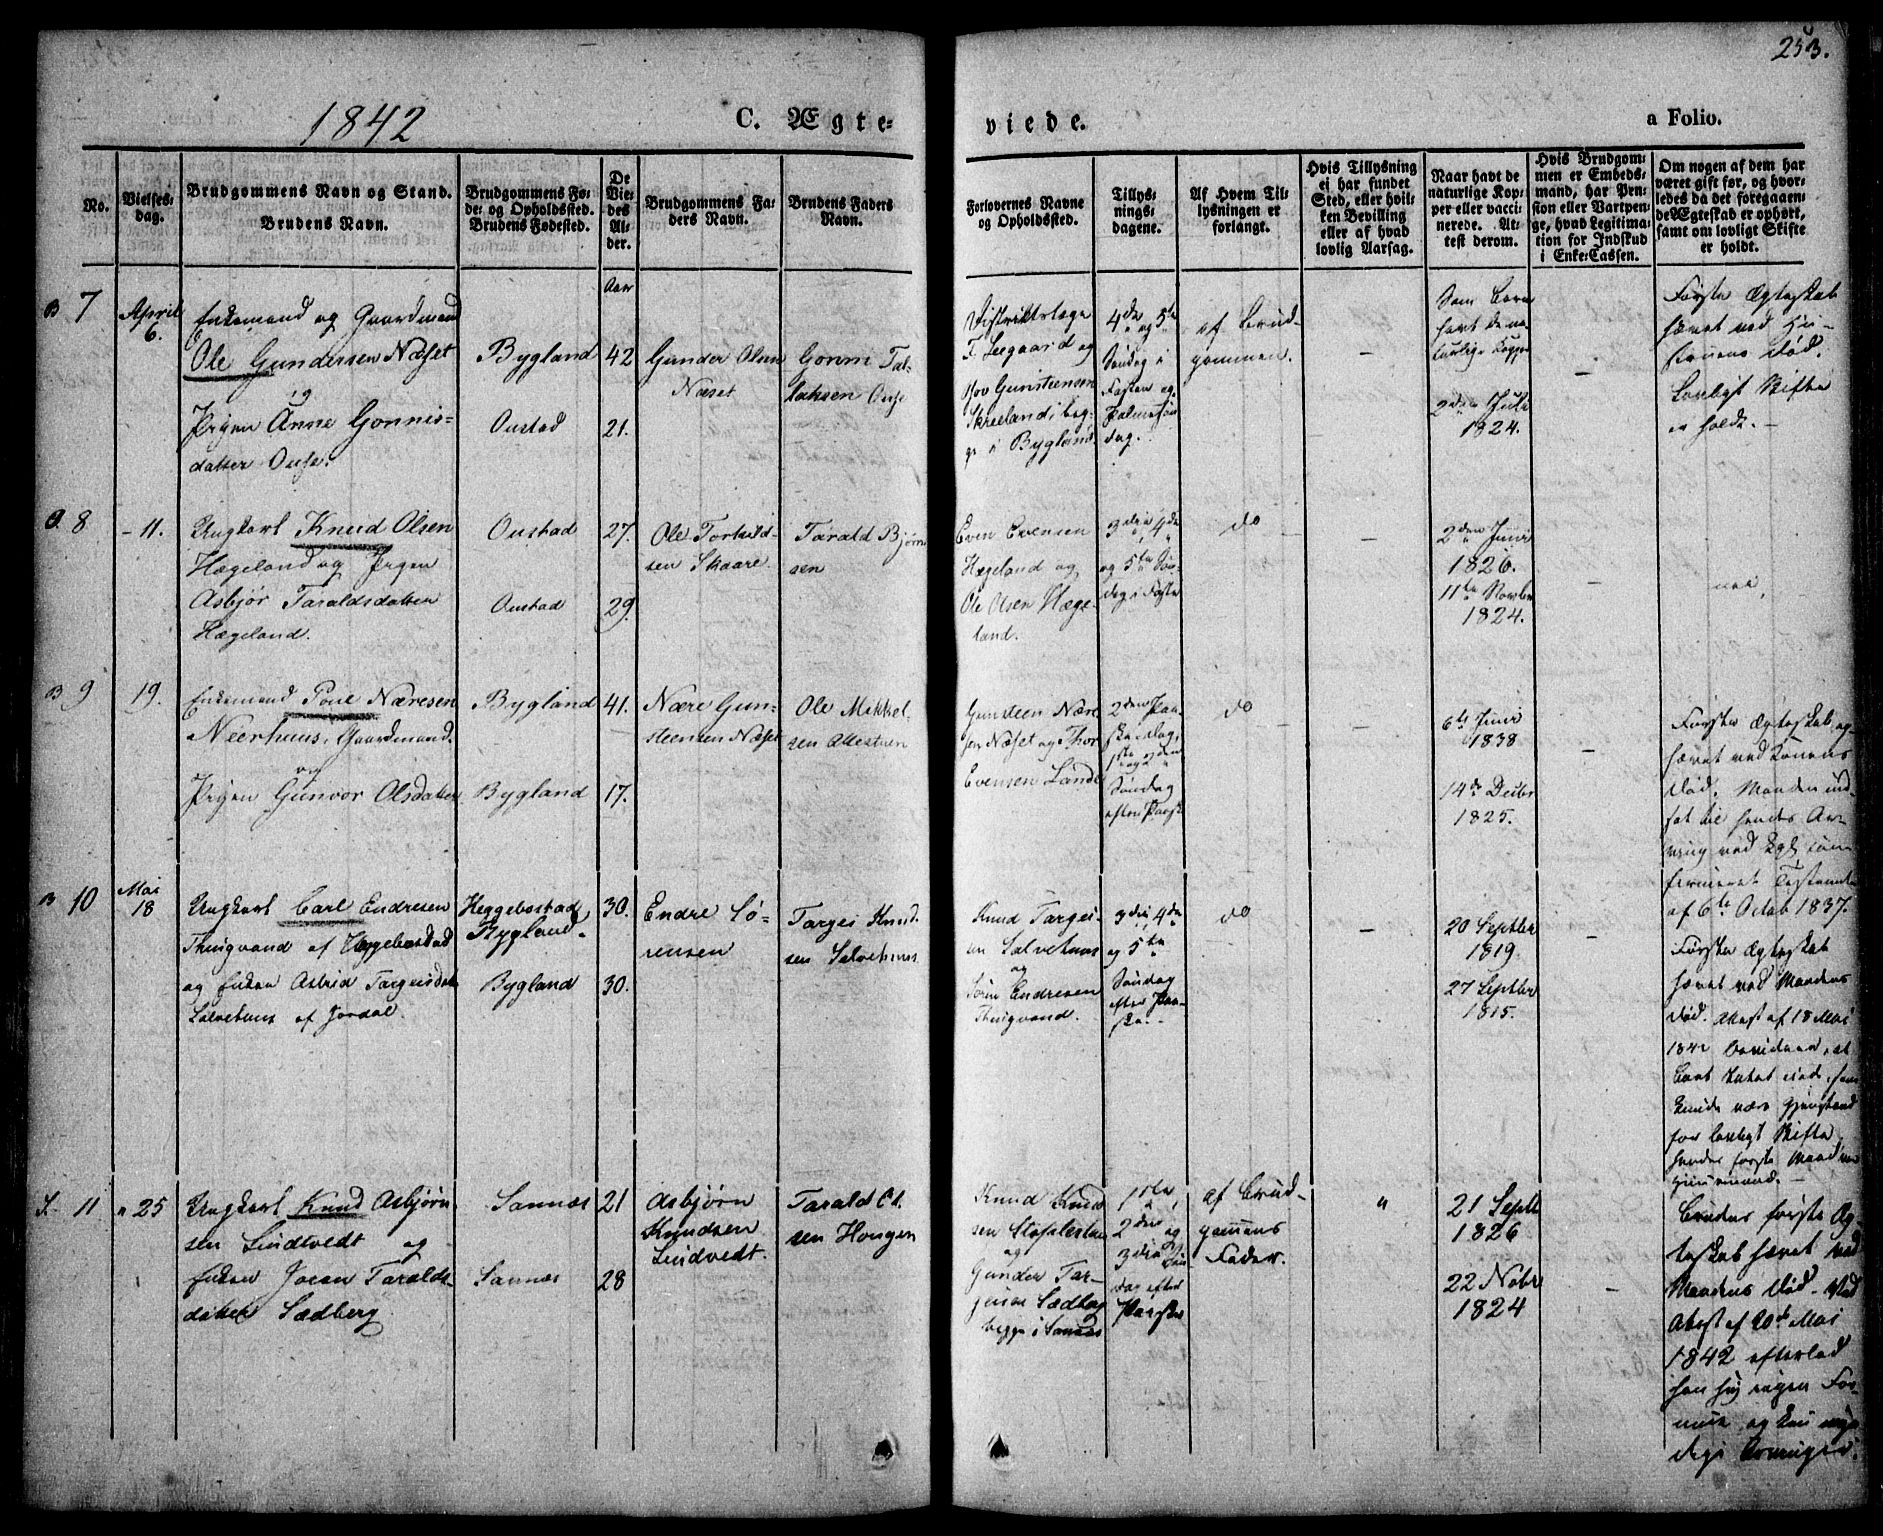 253.
1842
C. Ægte-
viede.
a Folio.
No.
Vielses-
dag.
Brudgommens Navn og Stand.
Brudens Navn.
Brudgommens Fø-
de- og Opholdssted.
Brudens Fødested.
De
Vie-
des
Al-
der.
Brudgommens Fa-
ders Navn.
Brudens Faders
Navn.
Forlovernes Navne
og Opholdssted.
Tillys-
nings-
dagene.
Af Hvem Til-
lysningen er
forlangt.
Hvis Tillysning
ei har fundet
Sted, eller hvil-
ken Bevilling
eller af hvad
lovlig Aarsag.
Naar havt de
naturlige Kop-
per eller vacci-
nerede. At-
test derom.
Hvis Brudgom-
men er Embeds-
mand, har Pen-
sion eller Vartpen-
ge, hvad Legitima-
tion for Indskud
i Enke-Cassen.
Om nogen af dem har
været gift før, og hvor-
ledes da det foregaaen-
de Ægteskab er ophørt,
samt om lovligt Skifte
er holdt.
B 7
April
6.
Enkemand og Gaardmand
Ole Gundersen Næset
og
Pigen Anne Gonnis-
datter Ouse.
Bygland
Oustad
Aar
42
21.
Gunder Olsen
Næset
Gonni Tal-
laksen Ouse
Districtslæge
F. Seegaard og
Gunsteensen
Skreeland, beg-
ge i Bygland.
4de og 5te
Søndag i
Fasten og
Palmesøn-
dag.
af Brud-
gommen.
Som Barn
havt de na-
turlige Kopper
2den Juli
1824.
Første Ægteskab
hævet ved Hu-
struens Død.
Lovligt Skifte
er holdt.
8
- 11.
Ungkarl Knud Olsen
Hægeland og Pigen
Asbjør Taraldsdatter
Hægeland.
Oustad
Oustad
27.
29.
Ole Torkild-
sen Skaare
Tarald Bjørn-
sen
Even Evensen
Hægeland og
Ole Olsen Hæge-
land.
3die, 4de
og 5te Søn-
dag i Faste
do
2den Juni
1826.
11te Novbr
1824.
nei.
B 9
19.
Enkemand Poul Næresen
Neerhuus, Gaardmand.
og
Pigen Gunvor Olsdatter
Bygland
Bygland
41.
17.
Nære Gun-
steensen Næset
Ole Mikkel-
sen
Gunsteen Nære-
sen Næset og Thor
Evensen Lande
2den Paa-
skedag,
1ste og 2den
Søndag
efter Paaske
do
6te Juni
1838
14de Decbr
1825.
Første Ægteskab op-
hævet ved Konens
Død. Manden ind-
sat til hendes Ar-
ving ved Kgl con-
firmeret Testamente
af 6te Octob 1837.
B 10
Mai
18
Ungkarl Carl Endresen
Thingvand af Heggebostad
og Enken Astrid Targeisdatr
Salvehuus af Jordal.
Heggebostad
Bygland.
Bygland
30.
30.
Endre Sø-
rensen
Targei Knud-
sen Salvehuus
Knud Targei-
sen Salvehuus
og
Sørin Endresen
Thingvand.
3die, 4de
og 5te
Søndag
efter Paa-
ske.
do
20 Septbr
1819.
27 Septbr
1815.
Første Ægteskab
hævet ved Mandens
Død. Attest af 18 Mai
1842 at
Boet Intet eied, som
kunde være Gjenstand
for lovligt Skifte,
hendes første Mand var
Huusmand.
11
" 25
Ungkarl Knud Asbjørn-
sen Lindtvedt og
Enken Joran Taralds-
datter Sædberg
Sannæs
Sannæs
21
28
Asbjørn
Knudsen
Lindvedt.
Tarald Ol-
sen Hougen
Knud Knud-
sen
og
Gunder Tar-
jesen Sædberg
begge i Sannæs
1ste,
2den og
3die Søn-
dag efter
Paaske
af Brud-
gommens
Fader.
"
21 Septb
1826
22 Nobr
1824
Brudens første Æg-
teskab hævet ved
Mandens Død. Ved
Attest af 20de Mai
1842 efterlod
han sig ingen For-
mue, og kun umyn-
dige Arvinger.